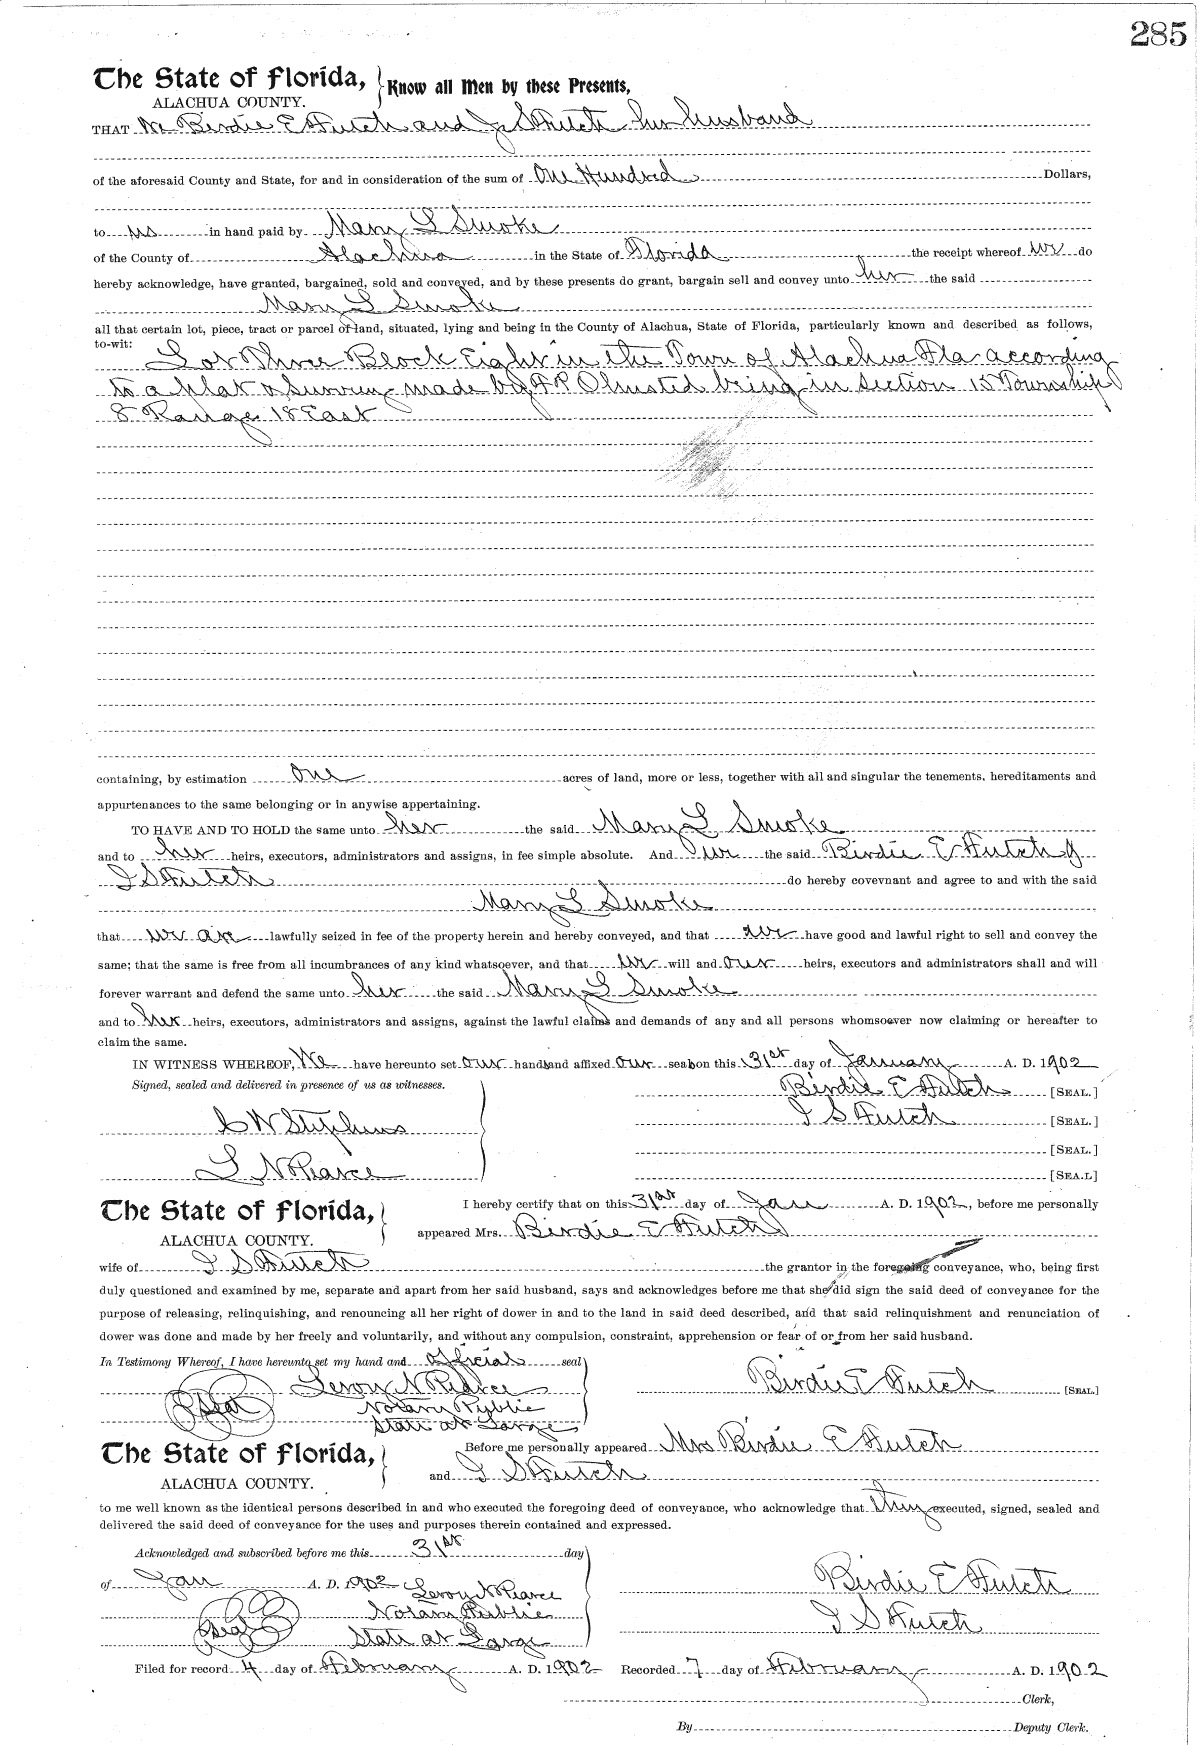 285
The State of Florida, Know all Men by these Presents,
ALACHUA COUNTY.
THAT We Birdie E Futch and J S Futch her husband
of the aforesaid County and State, for and in consideration of the sum of One Hundred Dollars,
to us in hand paid by Mary L Smoke
of the County of Alachua in the State of Florida the receipt whereof we do
hereby acknowledge, have granted, bargained, sold and conveyed, and by these presents do grant, bargain sell and convey unto her the said
Mary L Smoke
all that certain lot, piece, tract or parcel of land, situated, lying and being in the County of Alachua, State of Florida, particularly known and described as follows,
to-wit:
Lot Three Block Eight in the Town of Alachua Fla according
to a plat & Survey made by F P Olmsted being in section 15 Township
8 Range 18 East
containing, by estimation One acres of land, more or less, together with all and singular the tenements, hereditaments and
appurtenances to the same belonging or in anywise appertaining.
TO HAVE AND TO HOLD the same unto her the said Mary L Smoke
and to her heirs, executors, administrators and assigns, in fee simple absolute. And we the said Birdie E Futch &
J S Futch do hereby covevnant and agree to and with the said
Mary L Smoke
that we are lawfully seized in fee of the property herein and hereby conveyed, and that we have good and lawful right to sell and convey the
same; that the same is free from all incumbrances of any kind whatsoever, and that we will and our heirs, executors and administrators shall and will
forever warrant and defend the same unto her the said Mary L Smoke
and to her heirs, executors, administrators and assigns, against the lawful claims and demands of any and all persons whomsoever now claiming or hereafter to
claim the same.
IN WITNESS WHEREOF, We have hereunto set our hands and affixed our seals on this 31st day of January A. D. 1902
Signed, sealed and delivered in presence of us as witnesses. Birdie E Futch [SEAL.]
C W Stephens J S Futch [SEAL.]
[SEAL.]
L N Pearce [SEA.L]
The State of Florida, I hereby certify that on this 31st day of Jan A. D. 1902, before me personally
ALACHUA COUNTY. appeared Mrs. Birdie E Futch
wife of J S Futch the grantor in the foregoing conveyance, who, being first
duly questioned and examined by me, separate and apart from her said husband, says and acknowledges before me that she did sign the said deed of conveyance for the
purpose of releasing, relinquishing, and renouncing all her right of dower in and to the land in said deed described, and that said relinquishment and renunciation of
dower was done and made by her freely and voluntarily, and without any compulsion, constraint, apprehension or fear of or from her said husband.
In Testimony Whereof, I have hereunto set my hand and official seal
Seal Leroy N Pearce Birdie E Futch [SEAL.]
Notary Public
State at Large
The State of Florida, Before me personally appeared Mrs Birdie E Futch
ALACHUA COUNTY. and J S Futch
to me well known as the identical persons described in and who executed the foregoing deed of conveyance, who acknowledge that they executed, signed, sealed and
delivered the said deed of conveyance for the uses and purposes therein contained and expressed.
Acknowledged and subscribed before me this 31st day
of Jan A. D. 1902 Leroy N Pearce Birdie E Futch
Seal Notary Public J S Futch
State at Large
Filed for record 4 day of February A. D. 1902 Recorded 7 day of February A. D. 1902
Clerk,
By Deputy Clerk.